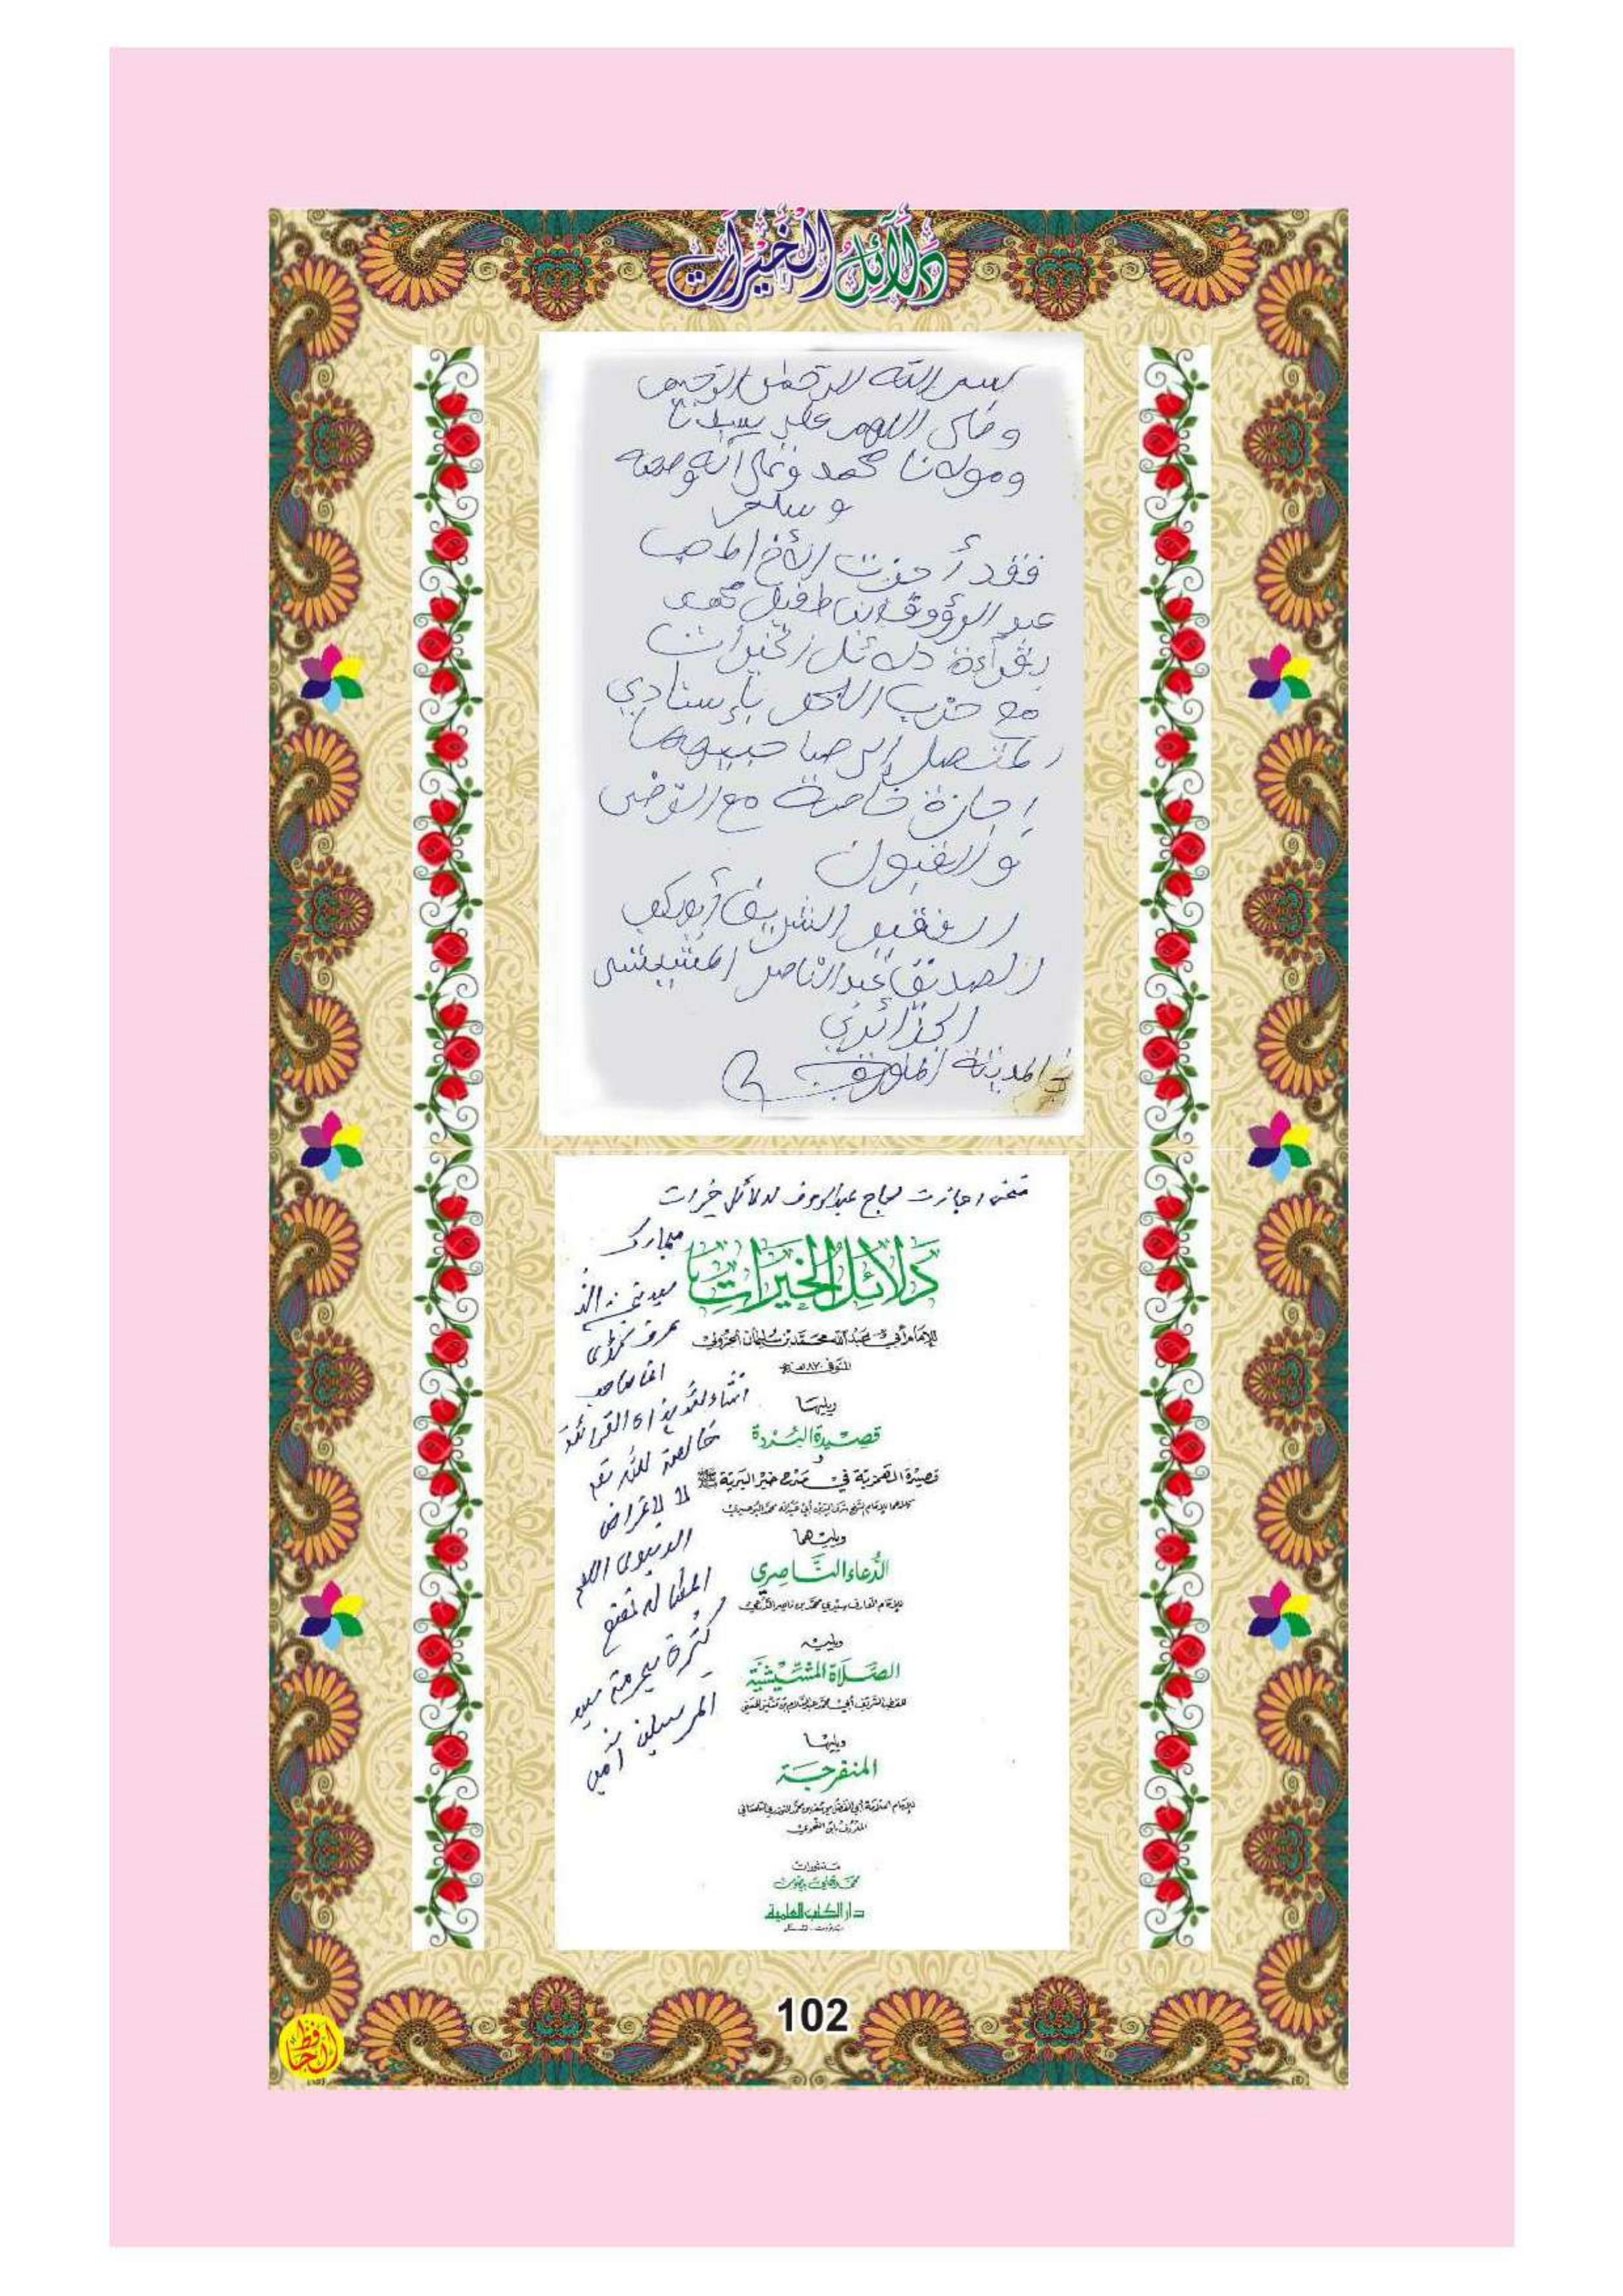 دَلَائِلُ الْخَيْرَات
بسم الله الرحمٰن الرحيم
وصلى اللهم على سيدنا
ومولانا محمد وعلى آله وصحبه
وسلم
فقد أجزت الأخ المحب
عبد الرؤوف ابن طفيل محمد
بقرأءة دلائل الخيرات
مع حزب البحر بإسنادي
المتصل إلى صاحبيهما
إجازة خاصة مع الرضى
والقبول
الفقير الشريف أبو بكر
الصديق عبد الناصر المشيشي
الجزائري
المدينة المنورة
اجازت لحاج عبد الروف لدلائل خيرات
مبارك
دلائل الخيرات
للإمام أبي عبد الله محمد بن سليمان الجزولي
المتوفى ٨٧٠ هـ
ويليها
قصيدة البردة
و
قصيدة الهمزية في مدح خير البرية ﷺ
كلاهما للإمام الشيخ شرف الدين أبي عبد الله محمد البوصيري
ويليهما
الدعاء الناصري
للإمام العارف سيدي محمد بن ناصر الدرعي
ويليه
الصلاة المشيشية
للقطب الشريف أبي محمد عبد السلام بن مشيش الحسني
ويليها
المنفرجة
للإمام العلامة أبي الفضل يوسف بن محمد التوزري التلمساني
المعروف بابن النحوي
منشورات
محمد علي بيضون
دار الكتب العلمية
بيروت - لبنان
خالصة لله
لا لاغراض
كثرة بحرمة سيد
المرسلين آمين
102
الحافظ